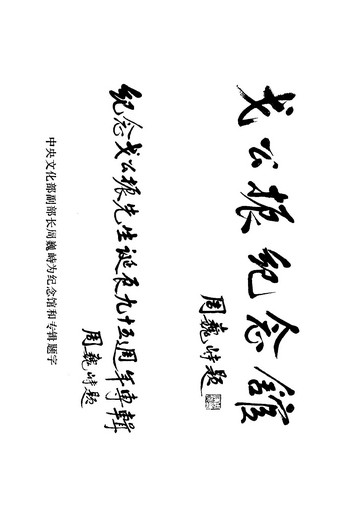 戈公振纪念馆
周巍峙题
纪念戈公振先生诞辰九十五周年專輯
周巍峙题
中央文化部副部长周巍峙为纪念馆和专辑题字